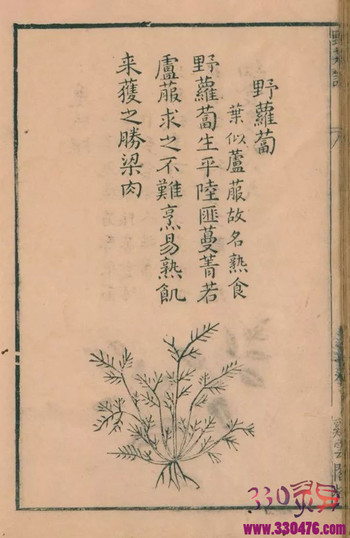 野蘿蔔
葉似蘆菔故名熟食
野蘿蔔生平陸匪蔓菁若
盧菔求之不難烹易熟飢
来獲之勝梁肉
330
www.330476.com